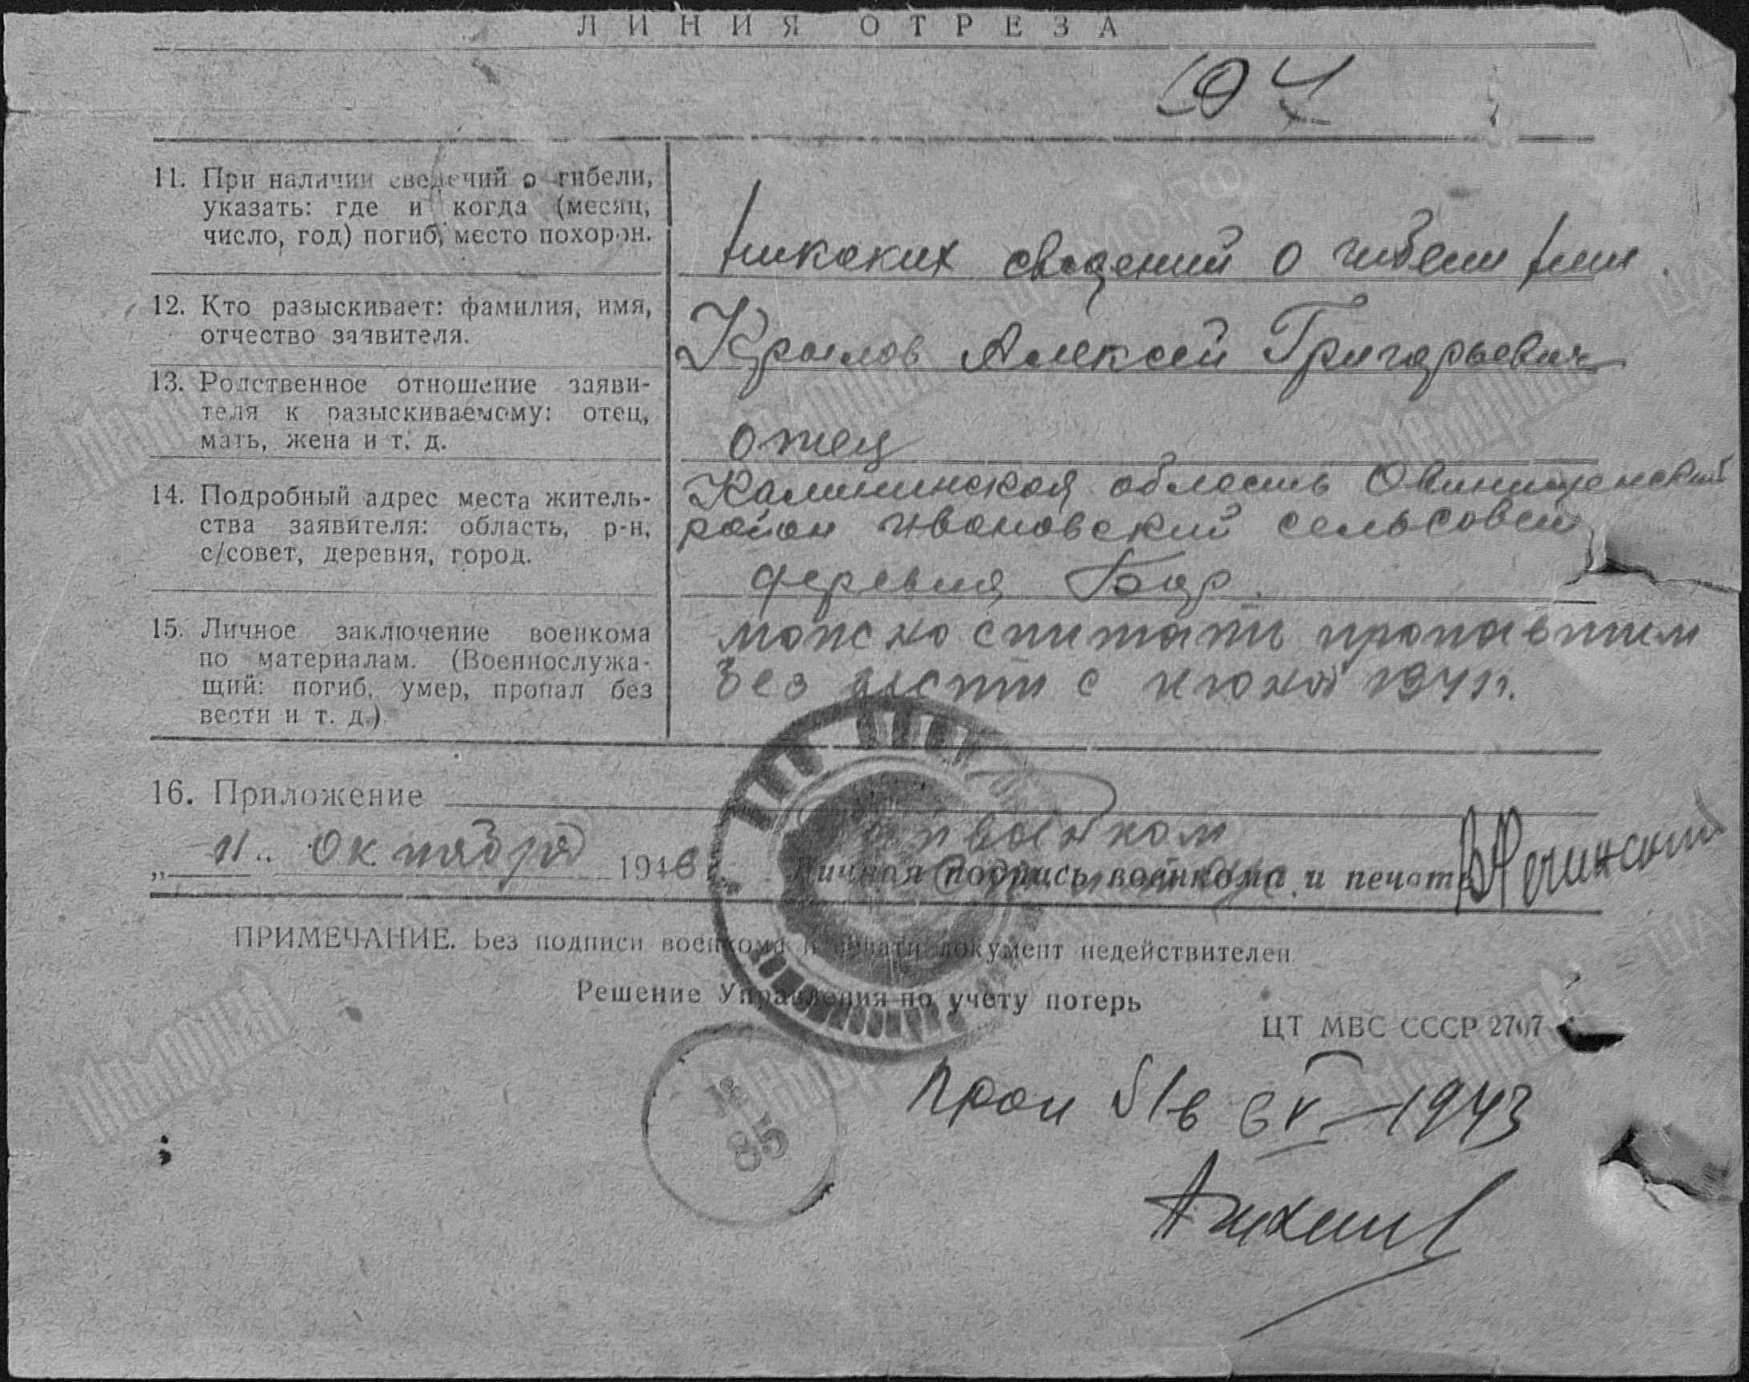 ЛИНИЯ ОТРЕЗА
11. При наличии сведений о гибели,
указать: где и когда (месяц,
число, год) погиб, место похорон.
Никаких сведений о гибели нет
12. Кто разыскивает: фамилия, имя,
отчество заявителя.
Крылов Алексей Григорьевич
13. Родственное отношение заяви-
теля к разыскиваемому: отец,
мать, жена и т. д.
отец
14. Подробный адрес места житель-
ства заявителя: область, р-н,
с/совет, деревня, город.
Калининская область Овинищенский
район Ивановский сельсовет
деревня Бор
15. Личное заключение военкома
по материалам. (Военнослужа-
щий: погиб, умер, пропал без
вести и т. д.)
можно считать пропавшим
без вести с июня 1941 г.
16. Приложение
„11" октября 1946
Личная подпись военкома и печать
ПРИМЕЧАНИЕ. Без подписи военкома и печати документ недействителен
Решение Управления по учету потерь
ЦТ МВС СССР 2707
85
Проп б/в в V-1943
Мемориал